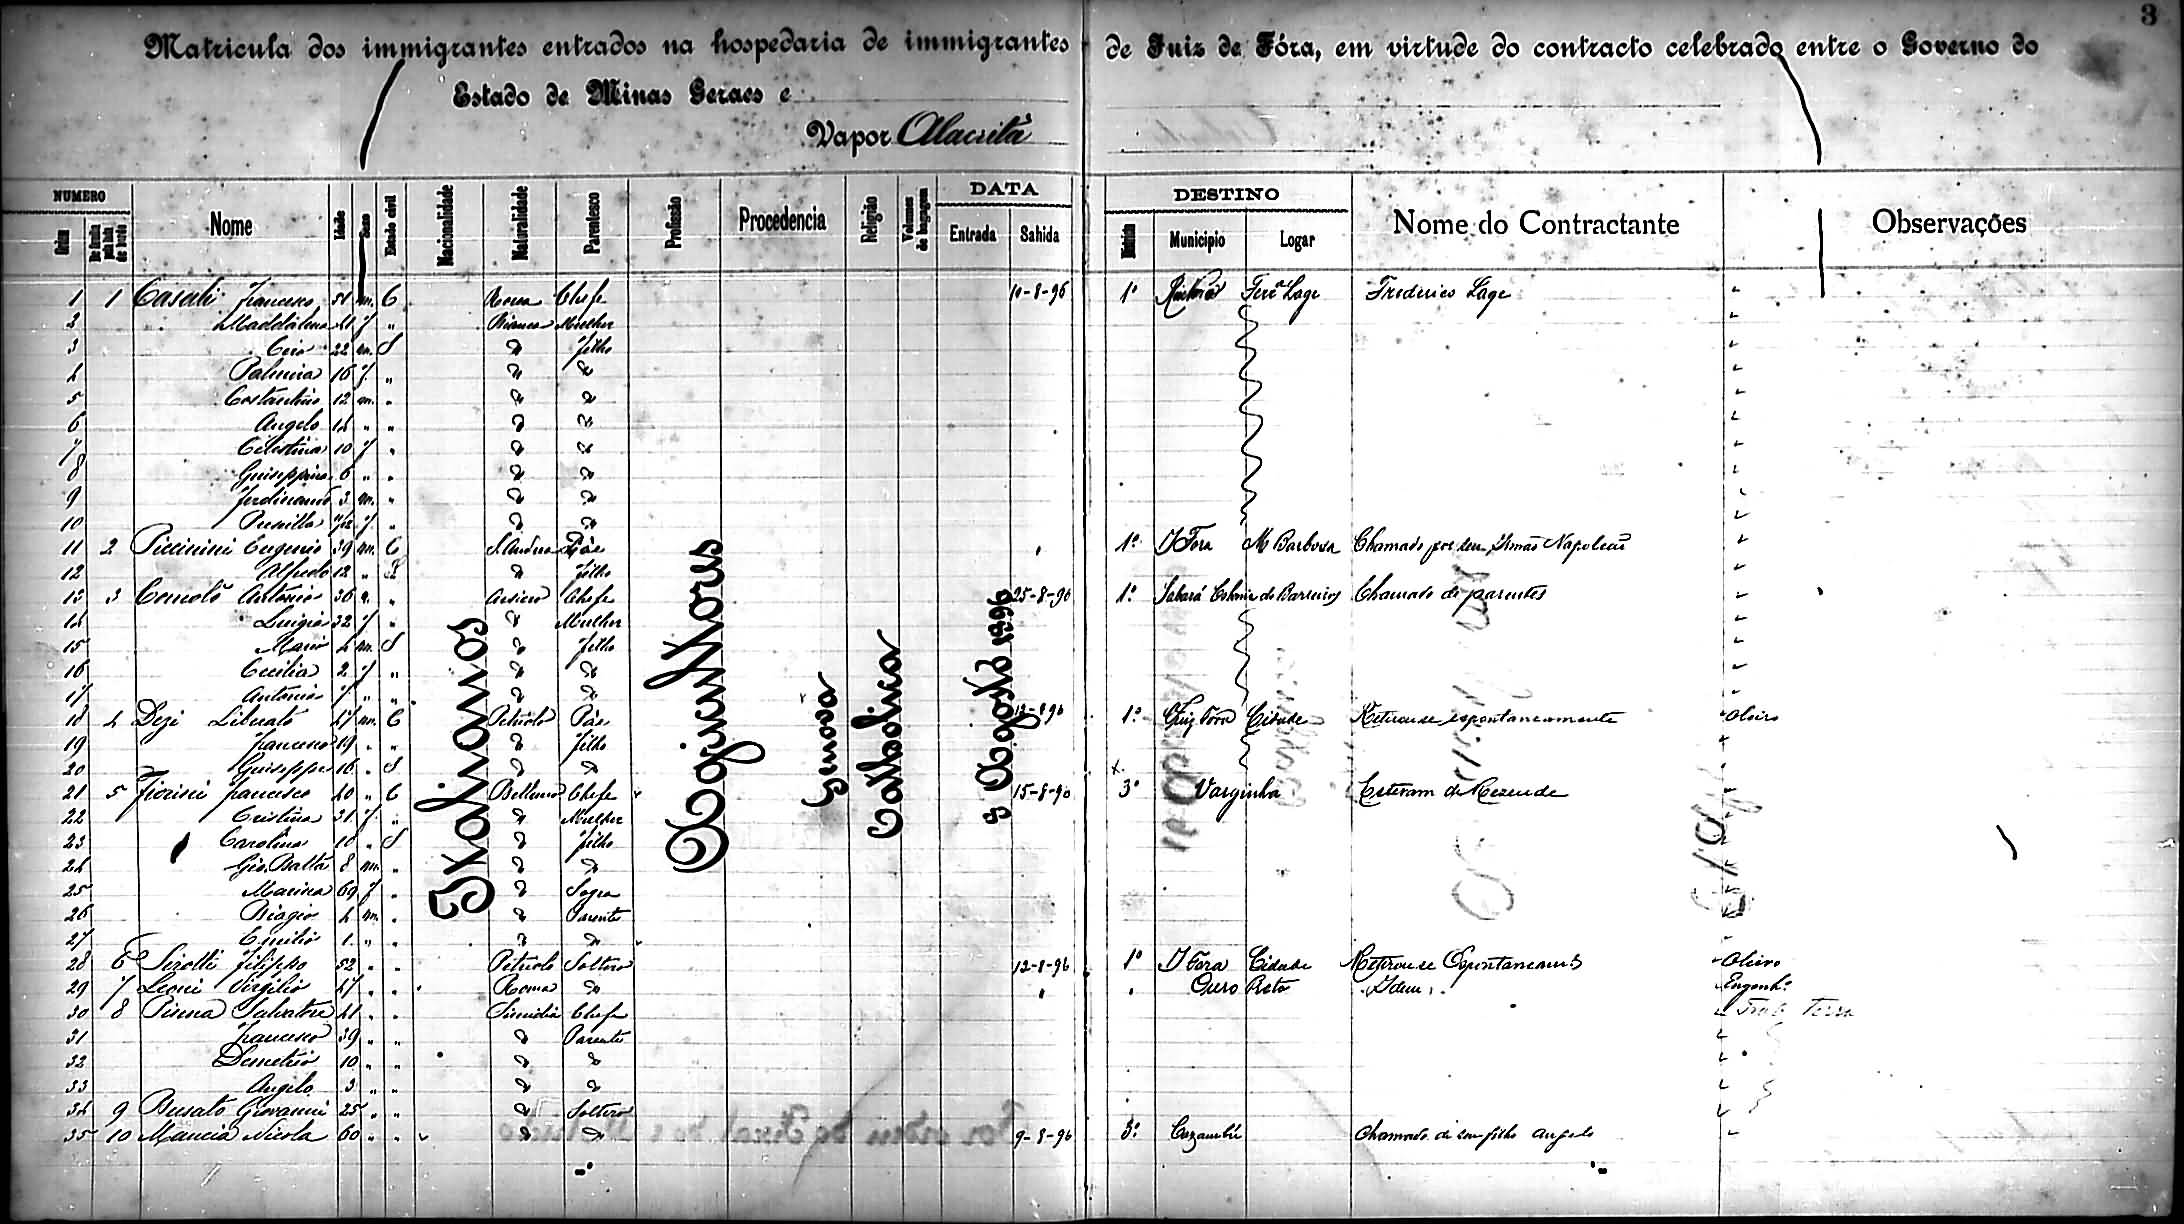 3
Matricula dos immigrantes entrados na hospedaria de immigrantes de Juiz de Fóra, em virtude do contracto celebrado entre o Governo do
Estado de Minas Geraes e
Vapor Alacrità
NUMERO DATA DESTINO
Ordem Nome Idade Sexo Estado civil Nacionalidade Naturalidade Parentesco Profissão Procedencia Religião Volumes de bagagem Entrada Sahida Districto Municipio Logar Nome do Contractante Observações
1 1 Casali Francesco 51 m. C Chefe 10-8-96 1º Ferª Lage Frederico Lage
2 Maddalena 41 f " Mulher
3 Ciro 22 m. S " Filho
4 Palmira 16 f. " " "
5 Costantino 12 m. " " "
6 Angelo 14 " " " "
7 Celestina 10 f " " "
8 Guiseppina 6 " " " "
9 Ferdinando 3 m. " " "
10 f " " "
11 2 Piccinini Eugenio 39 m. C Pae " 1º J Fora M Barbosa Chamado por seu Irmão Napoleão
12 Alfredo 12 " S " Filho
13 3 Antonio 36 " " Arsiero Chefe 25-8-96 1º Sabará Colonia do Barreiro Chamado de parentes
14 Luigia 32 f " " Mulher
15 Mario 4 m. S " Filho
16 Cecilia 2 f " " "
17 " " " "
18 4 Dezi Liberato 47 m. C Petriolo Pae 12-8-96 1º Juiz Fora Cidade Retirou-se espontaneamente Oleiro
19 Francesco 19 " " " Filho
20 Guiseppe 16 " S " "
21 5 Fiorini Francesco 40 " C Belluno Chefe 15-8-96 3º Varginha Estevam de Rezende
22 Cristina 31 f. " " Mulher
23 Carolina 10 " S " Filho
24 Gio. Batta 8 m. " " "
25 Marina 69 f " " Sogra
26 Biagio 4 m. " " Parente
27 Emilio 1 " " " "
28 6 Filippo 52 " " Petriolo Solteiro 12-8-96 1º J Fora Cidade Retirou-se Oleiro
29 7 Leoni Virgilio 47 " " Roma " " " Ouro Preto Idem Engenhº
30 8 Pinna Salvatore 41 " " Chefe Trab Terra
31 Francesco 39 " " " Parente
32 Demetrio 10 " " " "
33 Angelo 3 " " " "
34 9 Busato Giovanni 25 " " " Solteiro
35 10 Mancia Nicola 60 " " " " 9-8-96 3º Caxambú Chamado de seu filho Angelo
Italianos
Agricultores
Genova
Catholica
8 Agosto 1896